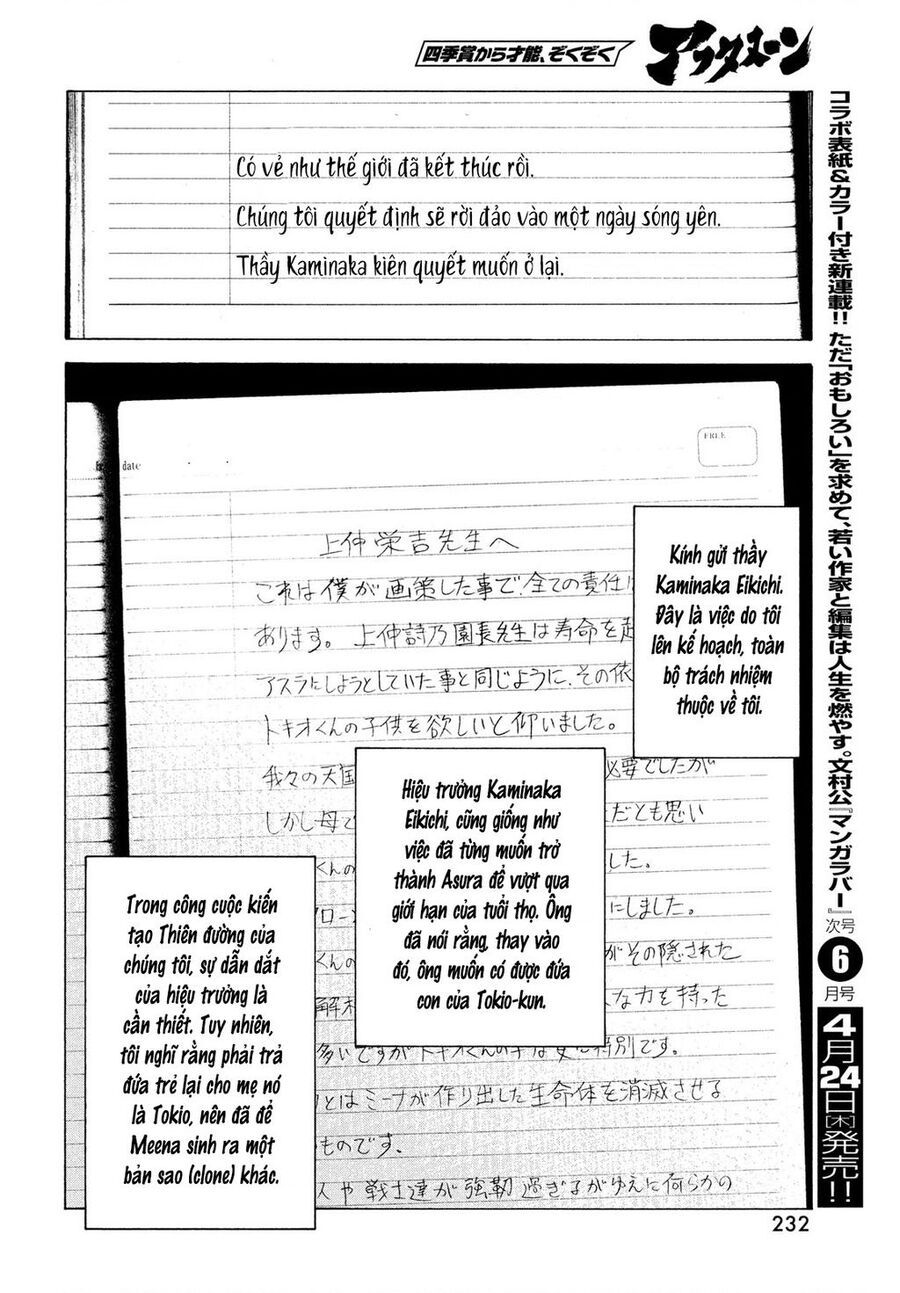 四季賞から才能、ぞくぞく
アフタヌーン
コラボ表紙&カラー付き新連載!! ただ「おもしろい」を求めて、若い作家と編集は人生を燃やす。文村公『マンガラバー』次号6月号4月24日[木]発売!!
Có vẻ như thế giới đã kết thúc rồi.
Chúng tôi quyết định sẽ rời đảo vào một ngày sóng yên.
Thầy Kaminaka kiên quyết muốn ở lại.
date
FREE
上仲栄吉先生へ
これは僕が画策した事で、全ての責任は
あります。上仲詩乃園長先生は寿命を
アスラにしようとしていた事と同じように、その依
トキオくんの子供を欲しいと仰いました。
我々の天国
必要でしたが
しかし母
だとも思い
くんの
した。
ローン
にしました。
くんの
がその隠された
解
な力を持った
多いですがトキオくんの子は更に特別です。
とはミーナが作り出した生命体を消滅させる
ものです。
人や戦士達が強靭過ぎるがゆえに何らかの
Kính gửi thầy
Kaminaka Eikichi.
Đây là việc do tôi
lên kế hoạch, toàn
bộ trách nhiệm
thuộc về tôi.
Hiệu trưởng Kaminaka
Eikichi, cũng giống như
việc đã từng muốn trở
thành Asura để vượt qua
giới hạn của tuổi thọ. Ông
đã nói rằng, thay vào
đó, ông muốn có được đứa
con của Tokio-kun.
Trong công cuộc kiến
tạo Thiên đường của
chúng tôi, sự dẫn dắt
của hiệu trưởng là
cần thiết. Tuy nhiên,
tôi nghĩ rằng phải trả
đứa trẻ lại cho mẹ nó
là Tokio, nên đã để
Meena sinh ra một
bản sao (clone) khác.
232